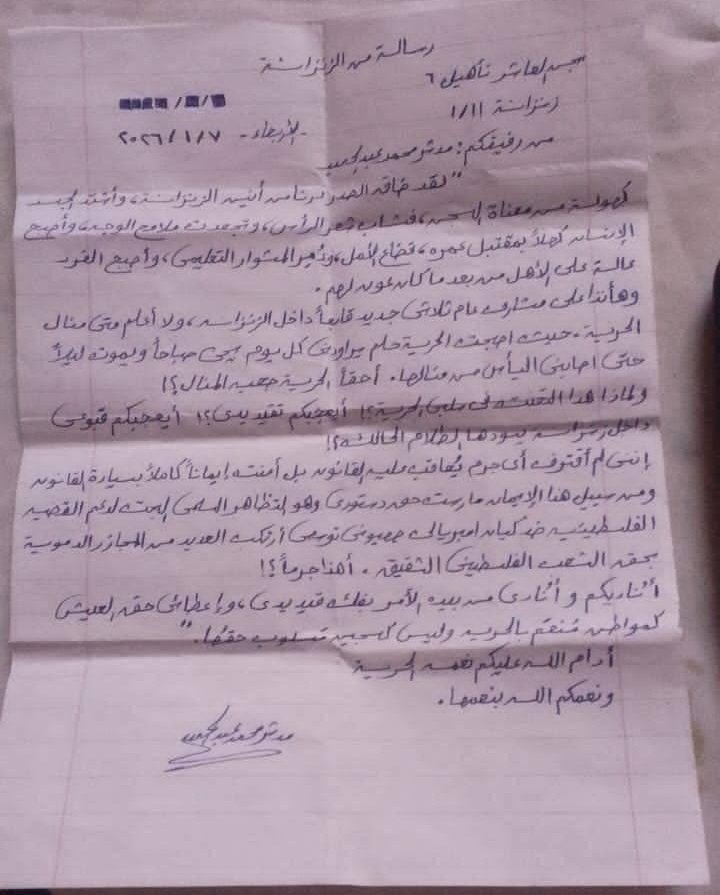 رسالة من الزنزانة
سجن العاشر تأهيل ٦
زنزانة ١/١١
- الأربعاء - ٢٠٢٦/١/٧
من رفيقكم: مدثر محمد عبدالحميد
"لقد ضاقه الصدر بنا من أنين الزنزانة، وأشتد الجسد
كهولة من معناة السجن، فشاب شعر الرأس، وتجعدت ملامح الوجه، وأصبح
الإنسان كهلاً بمقتبل عمره، فضاع الأمل، ودُمِر المشوار التعليمى، وأصبح الفرد
عالة على الأهل من بعد ما كان عون لهم.
وهأنذا على مشارف عام ثلاثى جديد قابعاً داخل الزنزانة، ولا أعلم متى منال
الحرية. حيث اصبحت الحرية حلم يراودنى كل يوم يحيى صباحاً ويموت ليلاً
حتى اصابنى اليأس من منالها. أحقاً الحرية صعبة المنال؟!
ولماذا هذا التعنت فى سلبى الحرية؟! أيعجبكم تقيد يدى؟! أيعجبكم قبوعى
داخل زنزانة يسودها الظلام الحالك؟!
إننى لم أقترف أى جرم يُعاقب عليه القانون بل أمنت إيماناً كاملاً بسيادة القانون
ومن سبيل هذا الإيمان مارست حق دستورى وهو التظاهر السلمى البحت لدعم القضية
الفلسطينية ضد كيان امبريالى صهيونى توسعى أرتكب العديد من المجازر الدموية
بحق الشعب الفلسطينى الشقيق. أهذا جرماً؟!
أُناديكم وأُنادى من بيده الأمر بفك قيد يدى، وإعطائى حق العيش
كمواطن مُنعم بالحرية وليس كسجين مسلوب حقها."
أدام الله عليكم نعمة الحرية
ونعمكم الله بنعمها.
مدثر محمد عبدالحميد